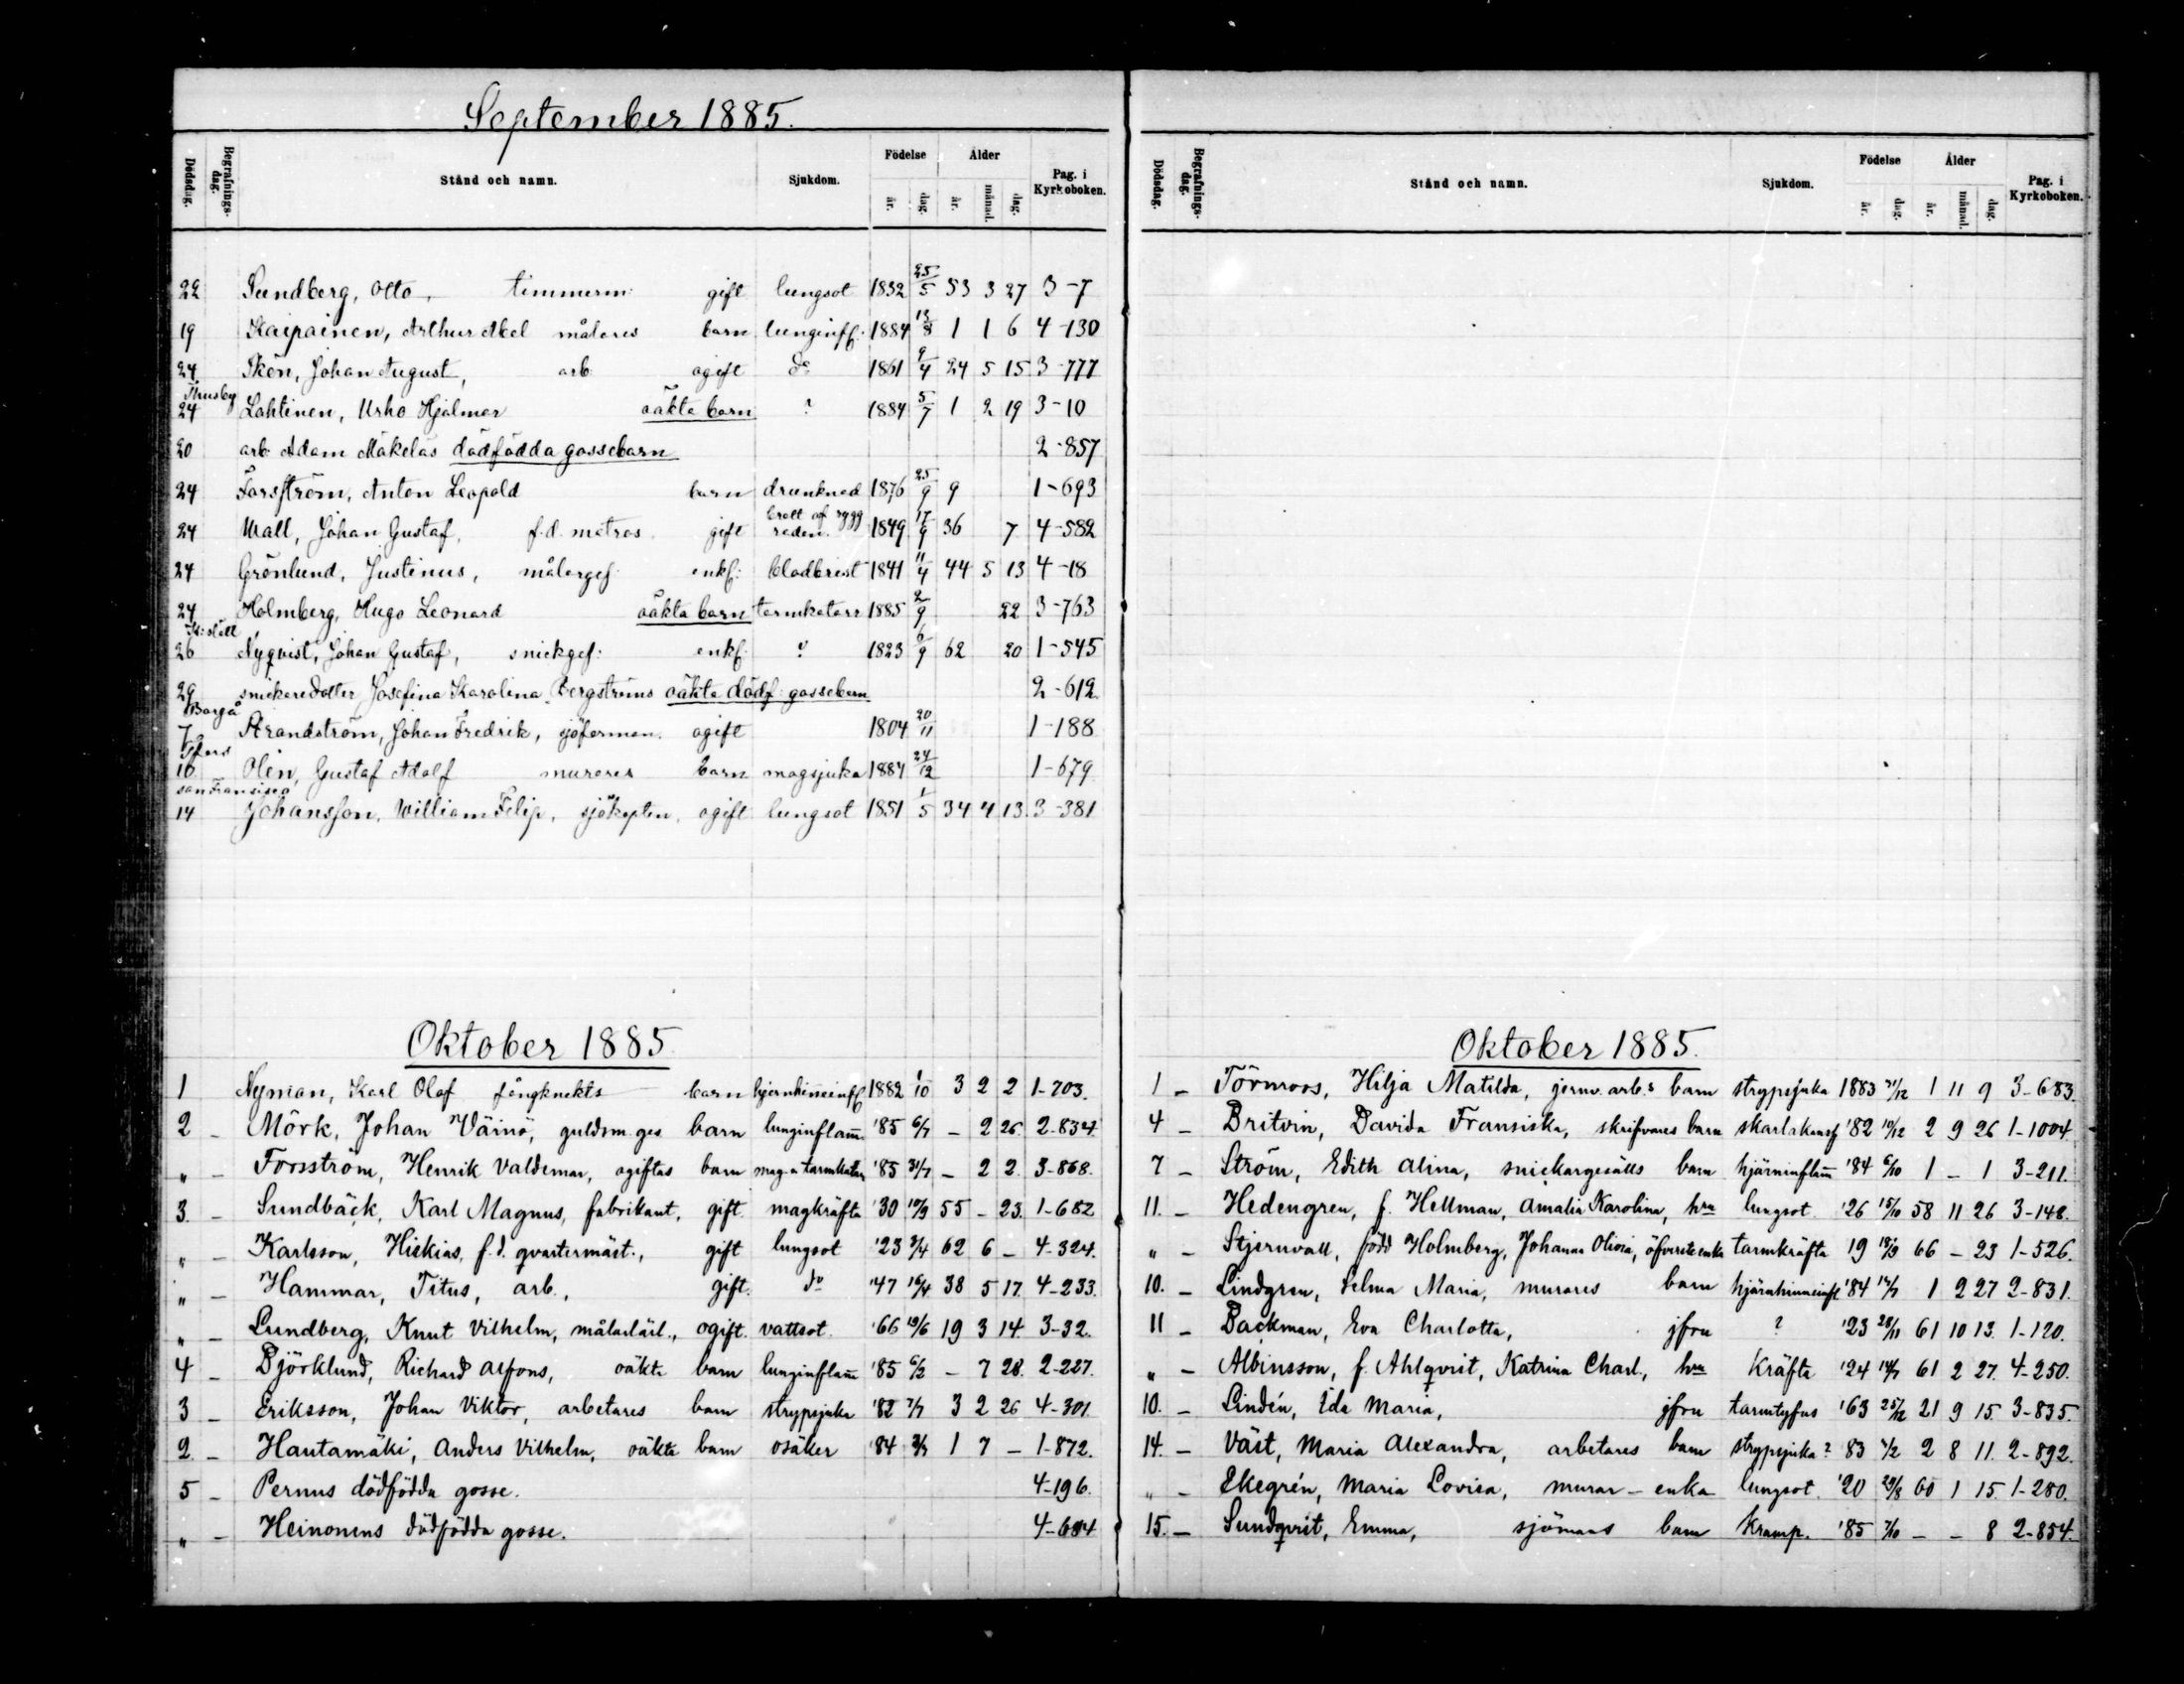 September 1885.
Dödsdag. Begrafnings-dag. Stånd och namn. Sjukdom. Födelse år. dag. Ålder år. månad. dag. Pag. i Kyrkoboken.
22 Sundberg, Otto, timmerm: gift lungsot 1832 25/5 53 3 27 3-7
19 Kaipainen, Arthur Axel målares barn lunginfl. 1884 13/8 1 1 6 4-130
24 Ikén, Johan August, arb ogift do 1861 9/4 24 5 15 3-777
Thusby
24 Lahtinen, Urho Hjalmar oäkta barn ? 1884 5/7 1 2 19 3-10
20 arb. Adam Mäkeläs dödfödda gossebarn 2-857
24 Forsström, Anton Leopold barn drunknad 1876 25/9 9 1-693
24 Wall, Johan Gustaf, f.d. matros gift brott af rygg raden. 1849 17/9 36 7 4-582
24 Grönlund, Justinus, målarges: enkl: blodbrist 1841 11/4 44 5 13 4-18
24 Holmberg, Hugo Leonard oäkta barn tarmkatarr 1885 2/9 22 3-763
26 Nyqvist, Johan Gustaf, snickges: enkl: ? 1823 6/9 62 20 1-545
29 snickaredotter Josefina Karolina Bergströms oäkta dödf: gossebarn 2-612
Borgå
7 Strandström, Johan Fredrik, sjöferman. ogift 1804 20/11 1-188
10 Olin, Gustaf Adolf murares barn magsjuka 1884 24/12 1-679
San Fransisco
14 Johansson, William Filip, sjökapten, ogift lungsot 1851 1/5 34 4 13. 3-381
Oktober 1885
1 Nyman, Karl Olof fångknekts barn hjernhinneinfl 1882 1/10 3 2 2 1-703.
2 - Mörk, Johan Väinö, guldsm.ges barn lunginflam. '85 6/7 - 2 26. 2-834.
" - Forsström, Henrik Valdemar, ogiftas barn mag-o tarmkatar '85 31/7 - 2 2. 3-868.
3. - Sundbäck, Karl Magnus, fabrikant, gift. magkräfta '30 10/9 55 - 23. 1-682
" - Karlsson, Hiskias, f.d. qvartermäst., gift lungsot '23 3/4 62 6 - 4-324.
" - Hammar, Titus, arb., gift. do '47 16/4 38 5 17. 4-233.
" - Lundberg, Knut Vilhelm, målarlärl., ogift. vattsot. '66 19/6 19 3 14. 3-32.
4 - Björklund, Richard Alfons, oäkta barn lunginflam '85 6/2 - 7 28. 2-227.
3 - Eriksson, Johan Viktor, arbetares barn strypsjuka '82 7/7 3 2 26 4-301.
2. - Hautamäki, Anders Vilhelm, oäkta barn osäker '84 1 7 - 1-872.
5 - Pernus dödfödda gosse. 4-196.
" - Heinonens dödfödda gosse. 4-604
Dödsdag. Begrafnings-dag. Stånd och namn. Sjukdom. Födelse år. dag. Ålder år. månad. dag. Pag. i Kyrkoboken.
Oktober 1885.
1 - Törnroos, Hilja Matilda, jernv. arb:s barn strypsjuka 1883 21/12 1 11 9 3-683.
4 - Britvin, Davida Fransiska, skrifvares barn skarlaknsf '82 10/12 2 9 26 1-1004
7 - Ström, Edith Alina, snickargesälls barn hjärninflam '84 6/10 1 - 1 3-211.
11. - Hedengren, f. Hellman, Amalia Karolina, hru lungsot. '26 15/10 58 11 26 3-148.
" - Stjernvall, född Holmberg, Johanna Olivia, öfversteenka tarmkräfta 19 18/9 66 - 23 1-526.
10. - Lindgren, Selma Maria, murares barn hjärnhinneinfl '84 14/7 1 2 27 2-831.
11 - Backman, Eva Charlotta, jfru ? '23 28/11 61 10 13. 1-120.
" - Albinsson, f. Ahlqvist, Katrina Charl., hru Kräfta '24 14/7 61 2 27. 4-250.
10. - Lindén, Ida Maria, jfru tarmtyfus '63 25/12 21 9 15. 3-835.
14. - Väst, Maria Alexandra, arbetares barn strypsjuka? '83 3/2 2 8 11. 2-892.
" - Ekegrén, Maria Lovisa, murar-enka lungsot. '20 29/8 60 1 15. 1-280.
15. - Sundqvist, Emma, sjömans barn Kramp. '85 7/10 - - 8 2-854.